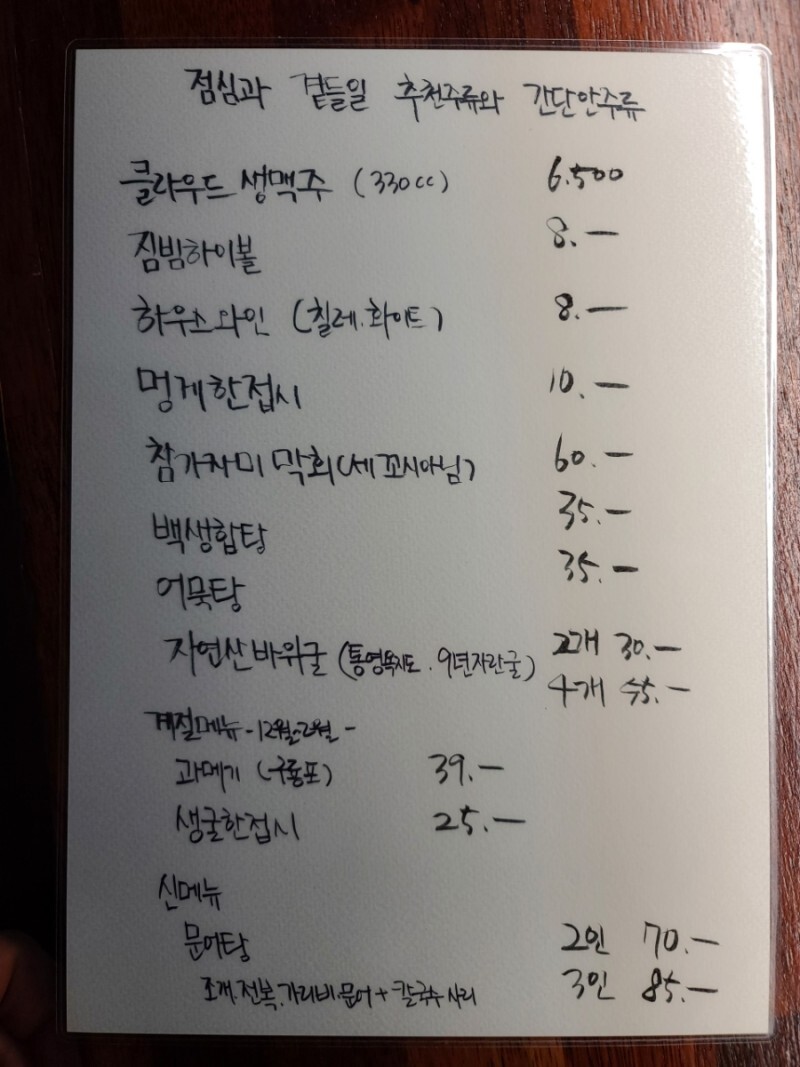 점심과 곁들일 추천주류와 간단안주류
클라우드 생맥주 (330cc) 6.500
짐빔하이볼 8.—
하우스와인 (칠레.화이트) 8.—
멍게한접시 10.—
참가자미 막회(세꼬시아님) 60.—
백생합탕 35.—
어묵탕 35.—
자연산바위굴 (통영욕지도.9년자란굴) 2개 30.—
4개 55.—
계절메뉴 -12월~2월-
과메기 (구룡포) 39.—
생굴한접시 25.—
신메뉴
문어탕 2인 70.—
조개.전복.가리비.문어+칼국수사리 3인 85.—